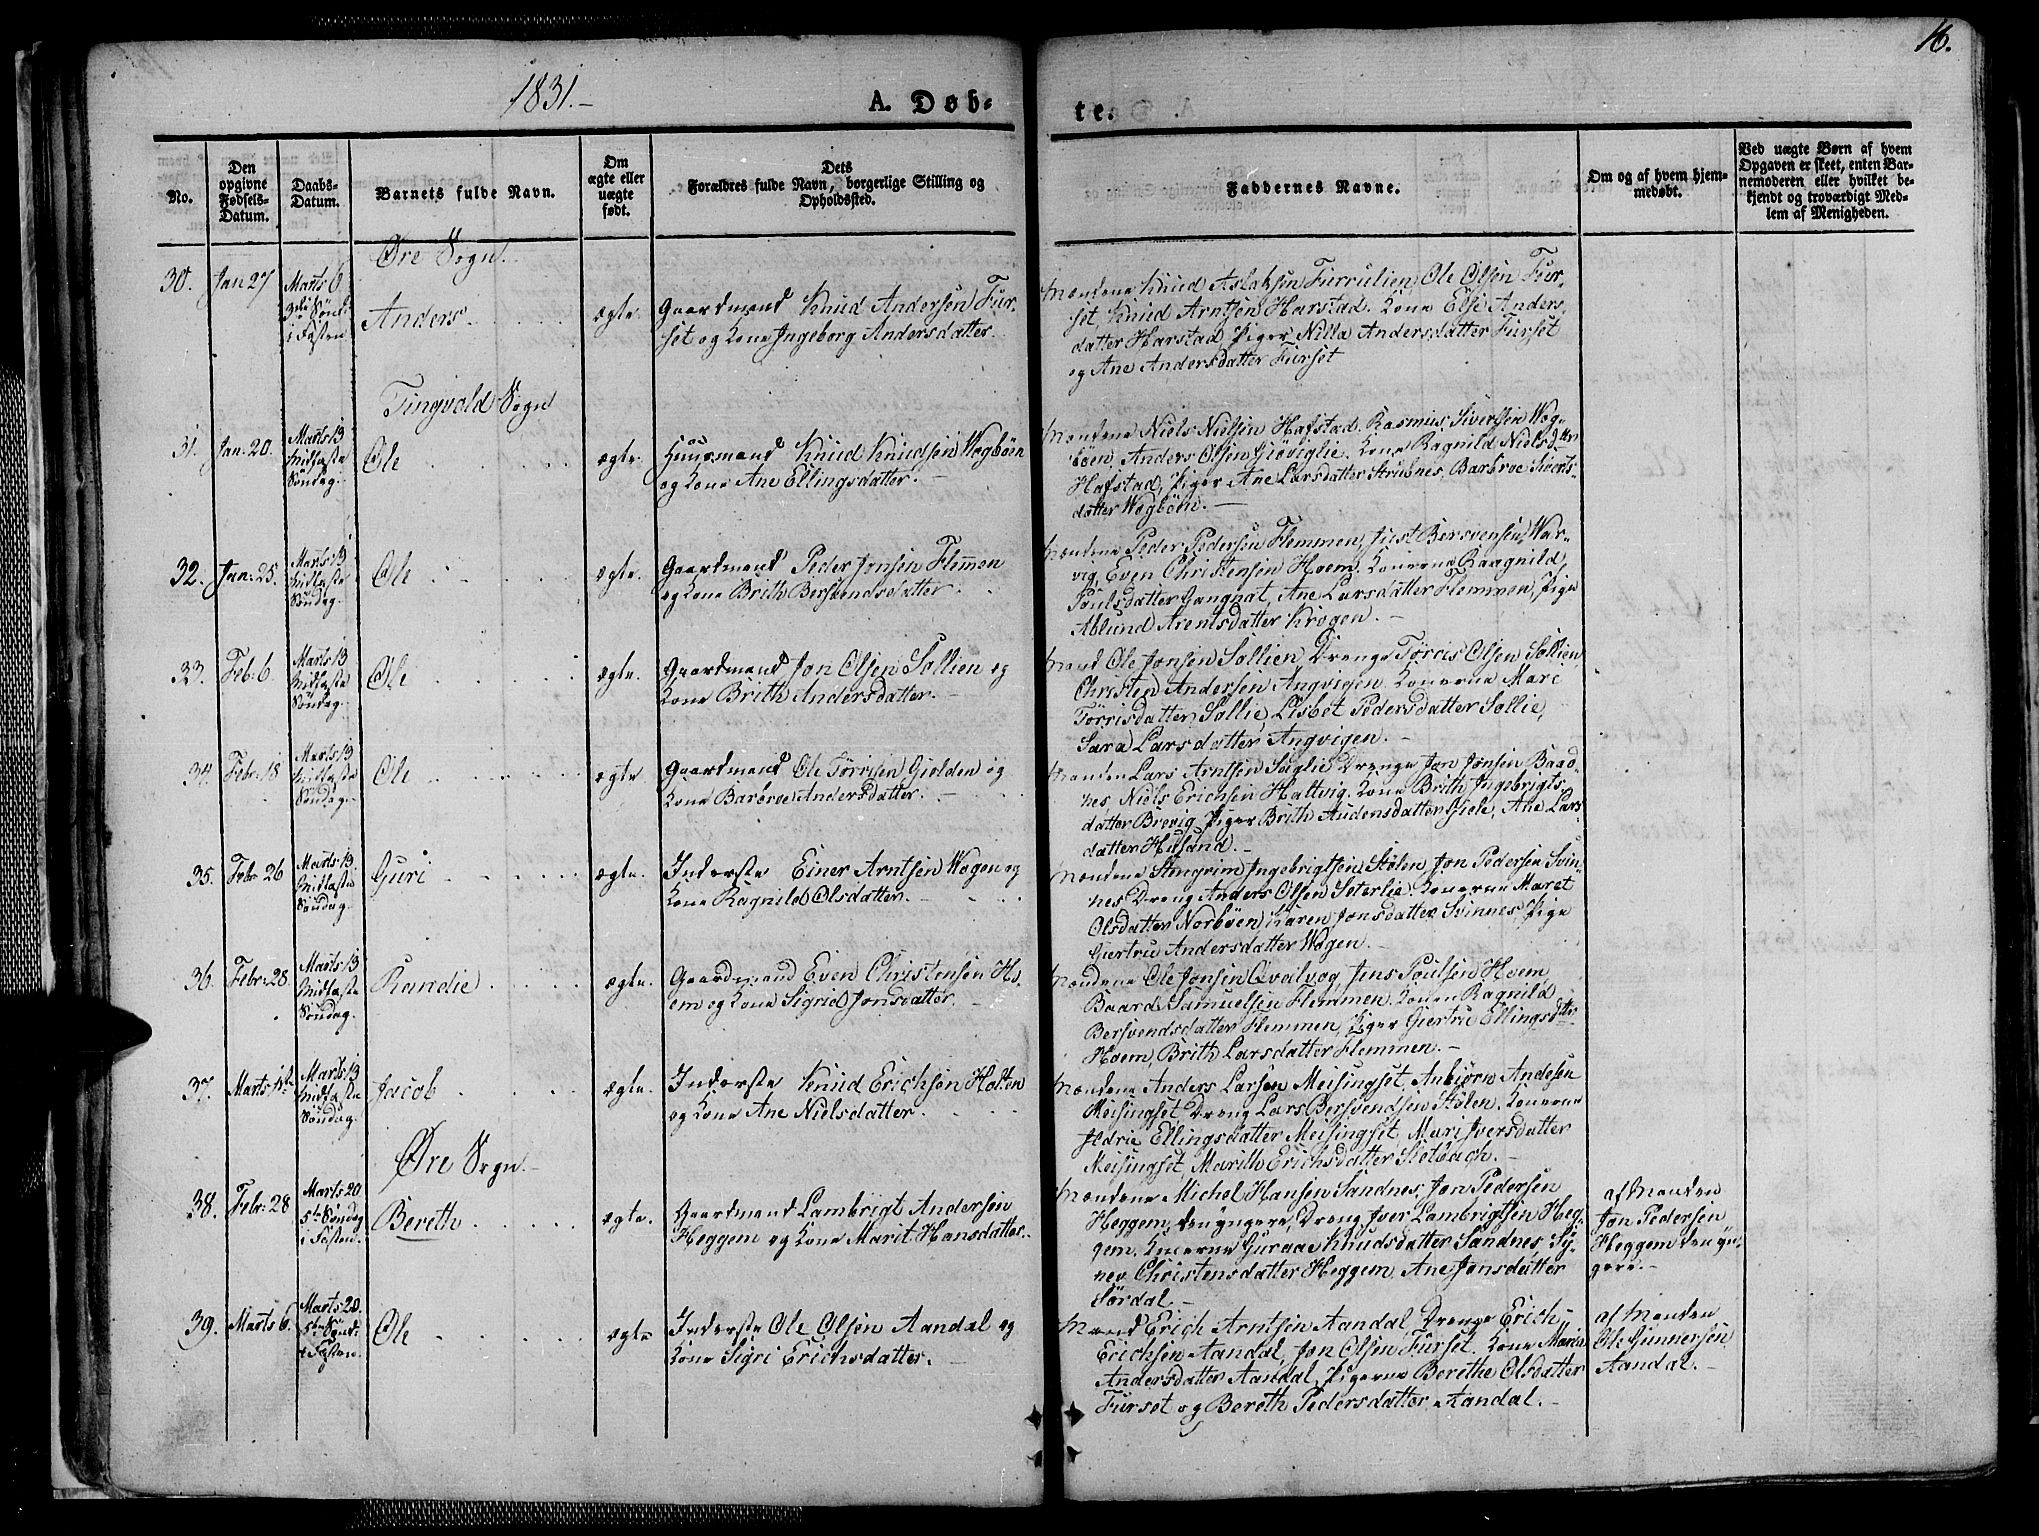 16.
1831.-
A. Døb-
te.
No.
Den
opgivne
Fødsels-
Datum.
Daabs-
Datum.
Barnets fulde Navn.
Om
ægte eller
uægte
født.
Dets
Forældres fulde Navn, borgerlige Stilling og
Opholdssted.
Faddernes Navne.
Om og af hvem hjem-
medøbt.
Ved uægte Børn af hvem
Opgaven er skeet, enten Bar-
nemoderen eller hvilket be-
kjendt og troværdigt Med-
lem af Menigheden.
Øre Sogn.
30.
Jan 27
Marts 6
3die Sønd:
i Fasten
Anders
ægte.
Gaardmand Knud Andersen Fur-
set og Kone Ingeborg Andersdatter.
Mændene Knud Aslaksen Furrulien, Ole Olsen Fur-
set, Knud Arntsen Harstad. Kone Else Anders-
datter Harstad, Piger Nilla Andersdatter Furset
og Ane Andersdatter Furset
Tingvold Sogn
31.
Jan. 20.
Marts 13
Midfaste
Søndag.
Ole
ægte.
Huusmand Knud Knudsen Wogbøen
og Kone Ane Ellingsdatter.-
Mændene Niels Nielsen Hafstad. Rasmus Siversen Wog-
bøen, Anders Olsen Giøviglie. Kone Ragnild Nielsdttr
Hafstad, Piger Ane Larsdatter, Barbroe Siverts-
datter Wogbøen.-
32.
Jan: 25.
Marts 13
Midfaste
Søndag.
Ole
ægte.
Gaardmand Peder Jonsen Flemmen
og Kone Brith Bersvendsdatter.
Mændene Peder Pedersen Flemmen, Just Bersvensen War-
vig, Even Christensen Hoem. Konerne Raagnild
Poulsdatter Gangnat, Ane Larsdatter Flemmen, Pige
Ablund Arentsdatter Krogen.-
33.
Feb: 6.
Marts 13
Midfaste
Søndag.
Ole
ægte.
Gaardmand Jon Olsen Sollien og
Kone Brith Andersdatter.-
Mand Ole Jonsen Sollien, Drenge Torris Olsen Sollien
Christen Andersen Angvigen. Konerne Mari
Torrisdatter Sollie, Lisbet Pedersdatter Sollie,
Sara Larsdatter Angvigen.-
34.
Febr: 18
Marts 13
Midfaste
Søndag.
Ole
ægte.
Gaardmand Ole Torrisen Giolden og
Kone Barbroe Andersdatter.-
Manden Lars Arntsen Soglie Drenge Jon Jonsen Baad-
nes, Niels Erichsen Haltvig. Kone Brith Ingebrigts-
datter Brevig Piger Brith Audensdatter Giele, Ane Lars-
datter Husund.-
35.
Febr: 26
Marts 13
Midfaste
Søndag.
Guri
ægte.
Inderste Einer Arntsen Wogen og
Kone Ragnild Olsdatter.-
Mændene Stengrim Ingebrigtsen Stølen, Jon Pedersen Svin-
nes Dreng Anders Olsen Seterlie. Konerne Maret
Olsdatter Norbøen, Karen Jonsdatter Svinnes, Pige
Giertru Andersdatter Wogen.-
36.
Febr: 28.
Marts 13
Midfaste
Søndag.
Randie
ægte.
Gaardmand Even Christensen Ho-
em og Kone Sigrid Jonsdatter.-
Mændene Ole Jonsen Qvalvog, Jens Poulsen Hoem
Baard Samuelsen Flemmen. Konen Ragnild
Bersvendsdatter Flemmen, Piger Giertru Ellingsdttr
Hoem, Brith Larsdatter Flemmen.-
37.
Marts
Marts 13
Midfaste
Søndag.
Jacob
ægte.
Inderste Knud Erichsen Holten
og Kone Ane Nielsdatter.
Mændene Anders Larsen Meisingset, Anbiørn Andesen
Meisingset Dreng Lars Bersvendsen Stølen, Konerne
Ildrie Ellingsdatter Meisingset, Mari Iversdatter
Meisingset, Marith Erichsdatter.-
Øre Sogn.-
38.
Febr: 28
Marts 20
5te Søndag
i Fasten.
Bereth
ægte.
Gaardmand Lambrigt Andersen
Heggem og Kone Marit Hansdatter.
Mændene Michel Hansen Sandnes, Jon Pedersen
Heggem, den yngere, Dreng Iver Lambrigtsen Heg-
gem. Konerne Guraae Knudsdatter Sandnes, Sy-
nev Christensdatter Heggem, Ane Jonsdatter
Sørdal.-
af Manden
Jon Pedersen
Heggem den yn-
gere.-
39.
Marts 6.
Marts 20.
5te Sønd:
i Fasten.
Ole
ægte
Inderste Ole Olsen Aandal og
Kone Sigri Erichsdatter.-
Mænd Erich Arntsen Aandal Drenge Erich
Erichsen Aandal, Jon Olsen Furset. Kone Maria
Andersdatter Aandal, Pigerne Berethe Olsdatter
Furset og Bereth Pedersdatter Aandal.-
af Manden
Ole Gunnersen
Aandal.-